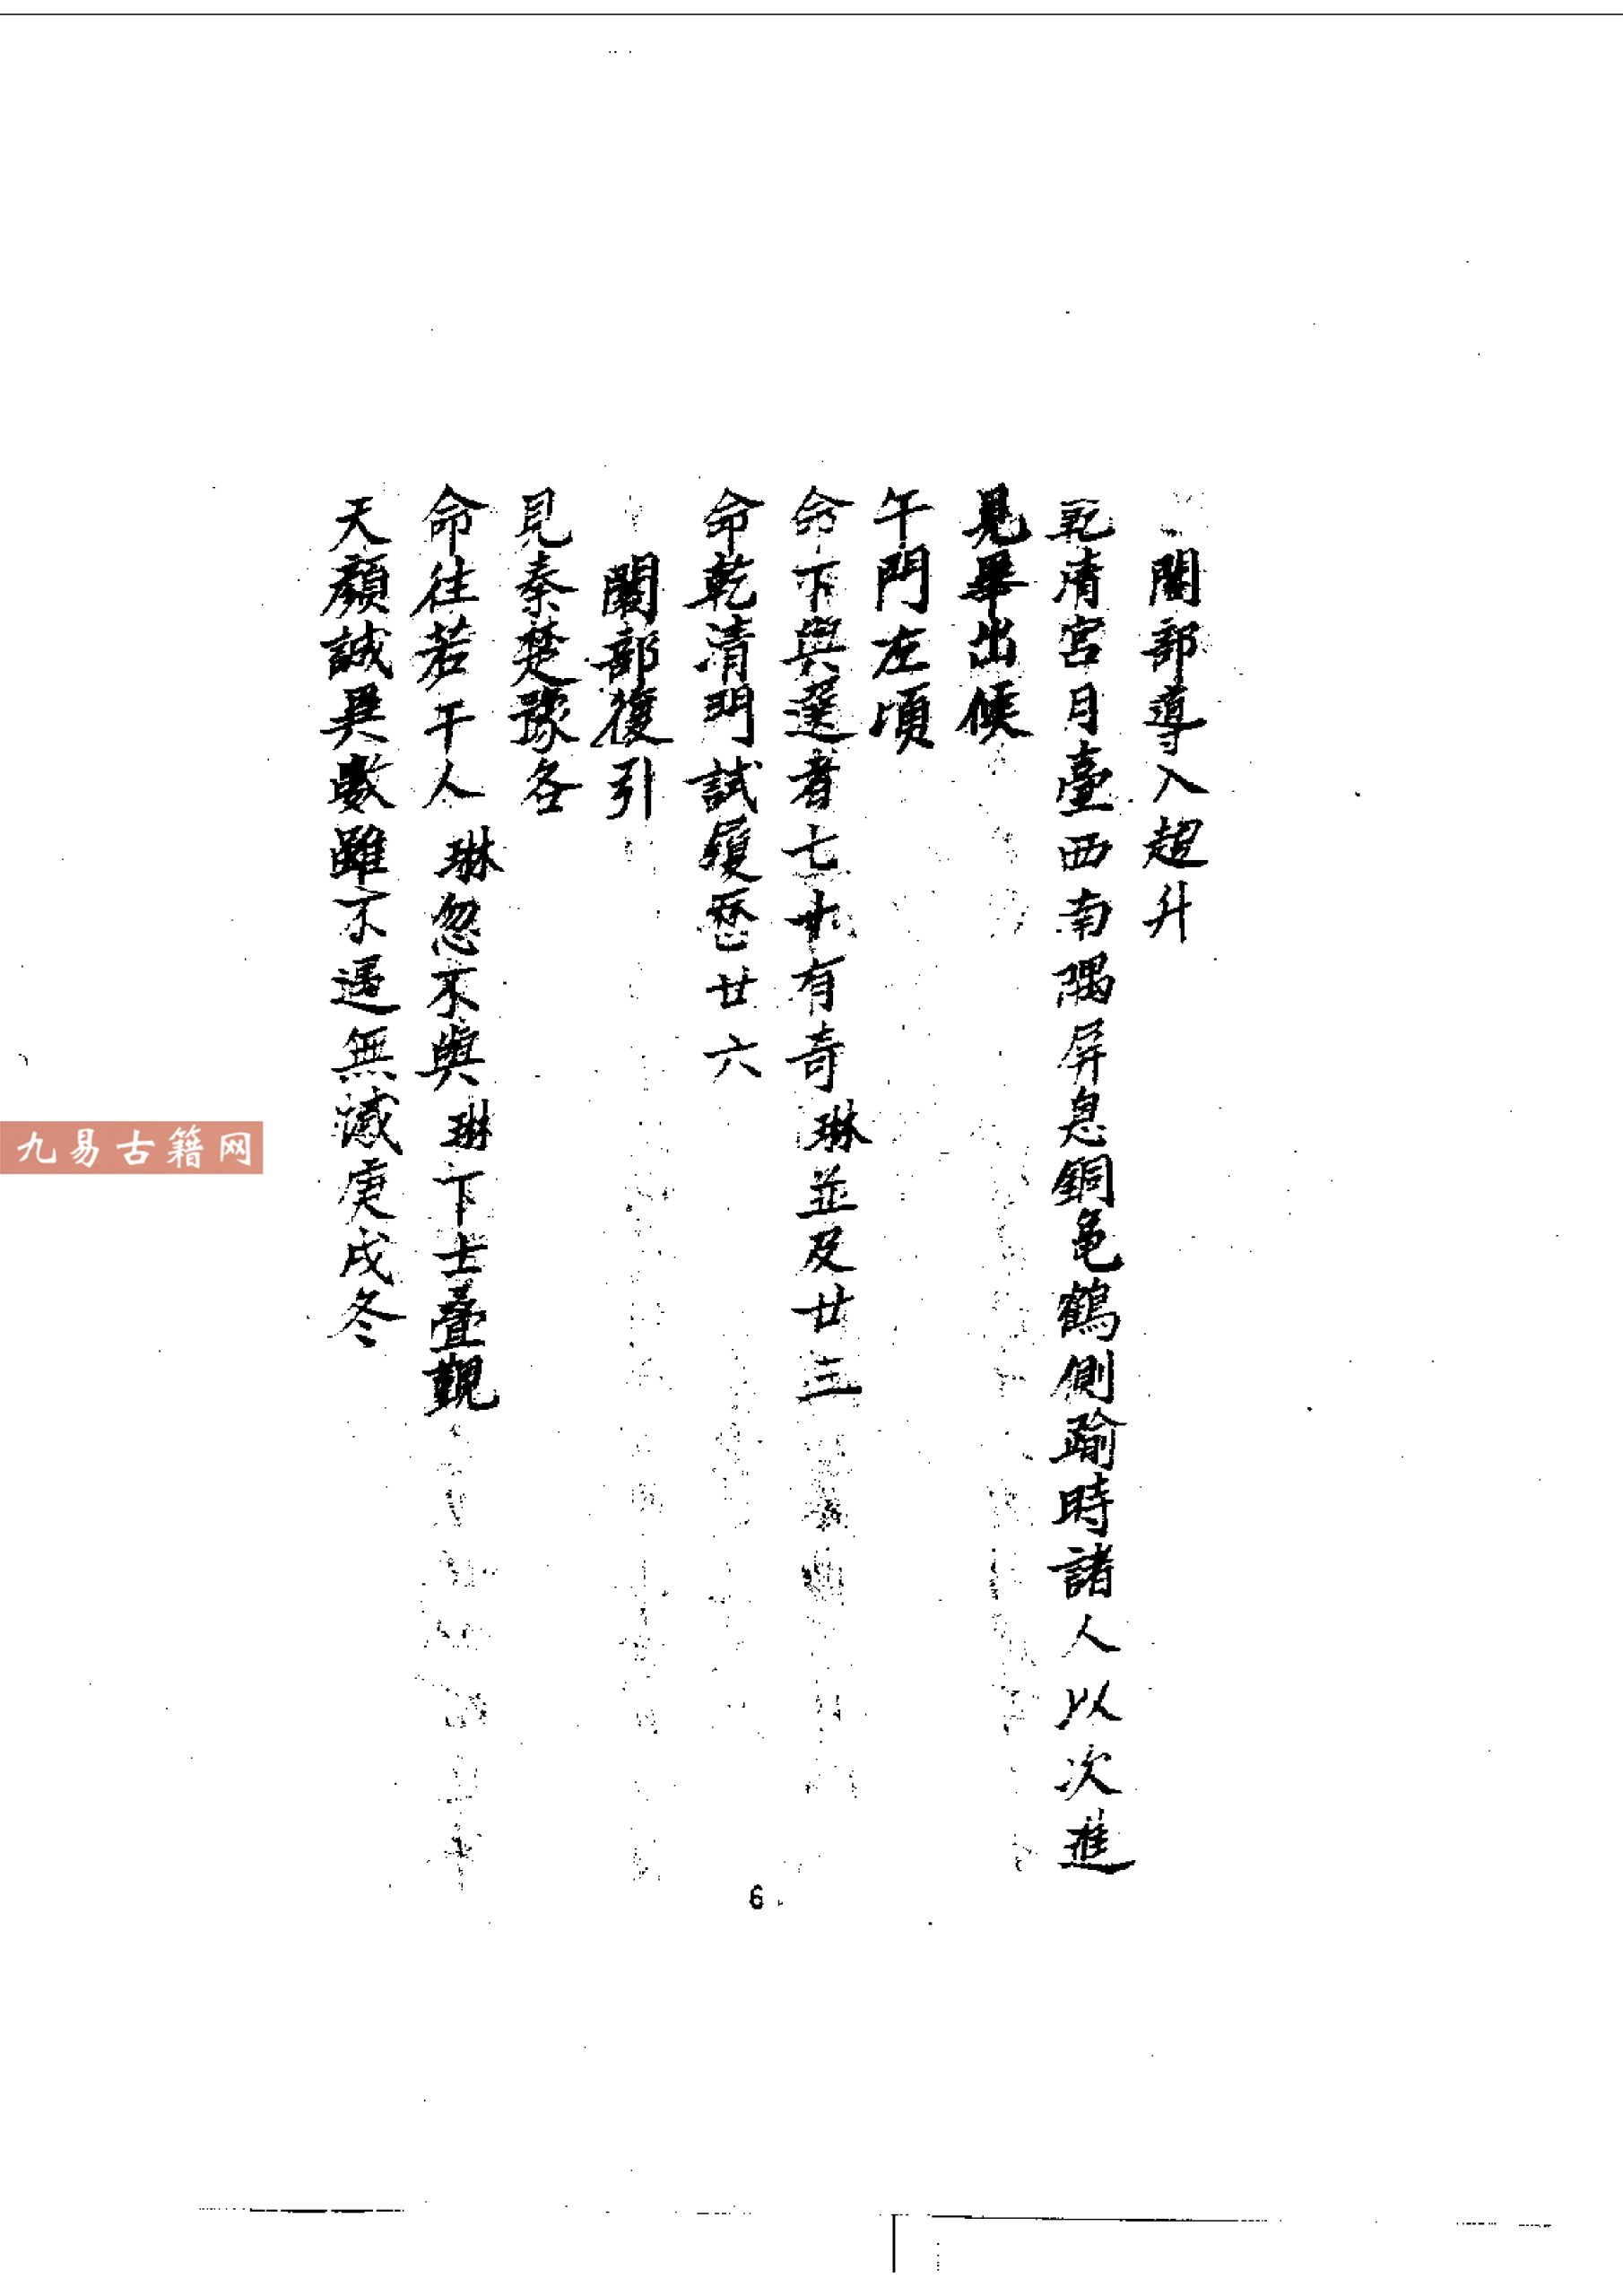 閣部導入趨升
乾清宮月臺西南隅屏息銅龜鶴側踰時諸人以次進
見畢出候
午門左頃
命下與選者七十有奇琳並及廿三
命乾清門試履歷廿六
閣部復引
見秦楚豫各
命往若干人琳忽不與琳下士疊覲
天顏誠異數雖不遇無憾庚戌冬
6
九易古籍网